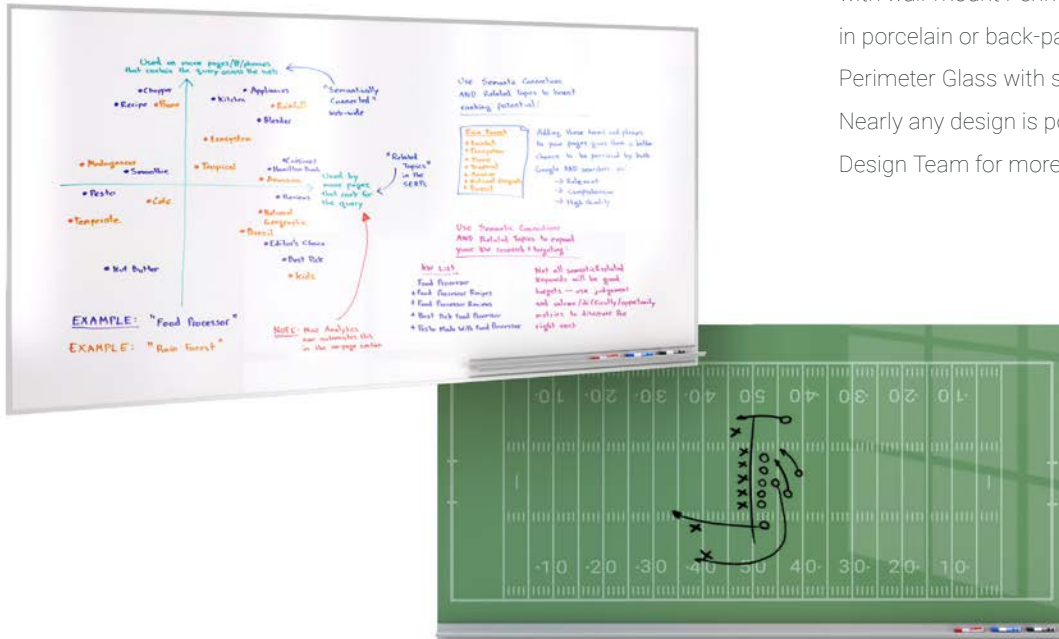 with wall-mount
in porcelain or back-pa
Perimeter Glass with s
Nearly any design is po
Design Team for more
Used on more pages/
that contain the query across the web
"Semantically
Connected"
web-wide
Chopper
Recipe
Appliances
Kitchen
Rainfall
Blender
Ecosystem
Madagascar
Smoothie
Tropical
Cuisinart
Hamilton Beach
Amazon
Used by
more pages
that rank for
the query
"Related
Topics"
in the
SERPs
Pesto
Cake
Temperate
Reviews
National
Geographic
Brazil
Editor's Choice
Best Pick
Kids
Nut Butter
EXAMPLE: "Food Processor"
EXAMPLE: "Rain Forest"
NOTE: Moz Analytics
now automates this
in the on-page section
Use Semantic Connections
AND Related Topics to boost
ranking potential:
Rain Forest
Rainfall
Ecosystem
Tropical
National Geographic
Adding these terms and phrases
to your pages gives them a better
chance to be perceived by both
Google AND searchers as:
→ Relevant
→ Comprehensive
→ High Quality
Use Semantic Connections
AND Related Topics to expand
your KW research + targeting:
KW LIST
Food Processor
+ Food Processor Recipes
+ Food Processor Reviews
+ Best Pick Food Processor
+ Pesto Made With Food Processor
Not all semantic/related
keywords will be good
targets — use judgement
and volume/difficulty/opportunity
metrics to discover the
right ones
10 20 30 40 50 40 30 20 10
10 20 30 40 50 40 30 20 10